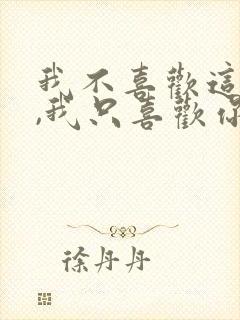 我不喜歡這
,我只喜歡你
徐丹丹